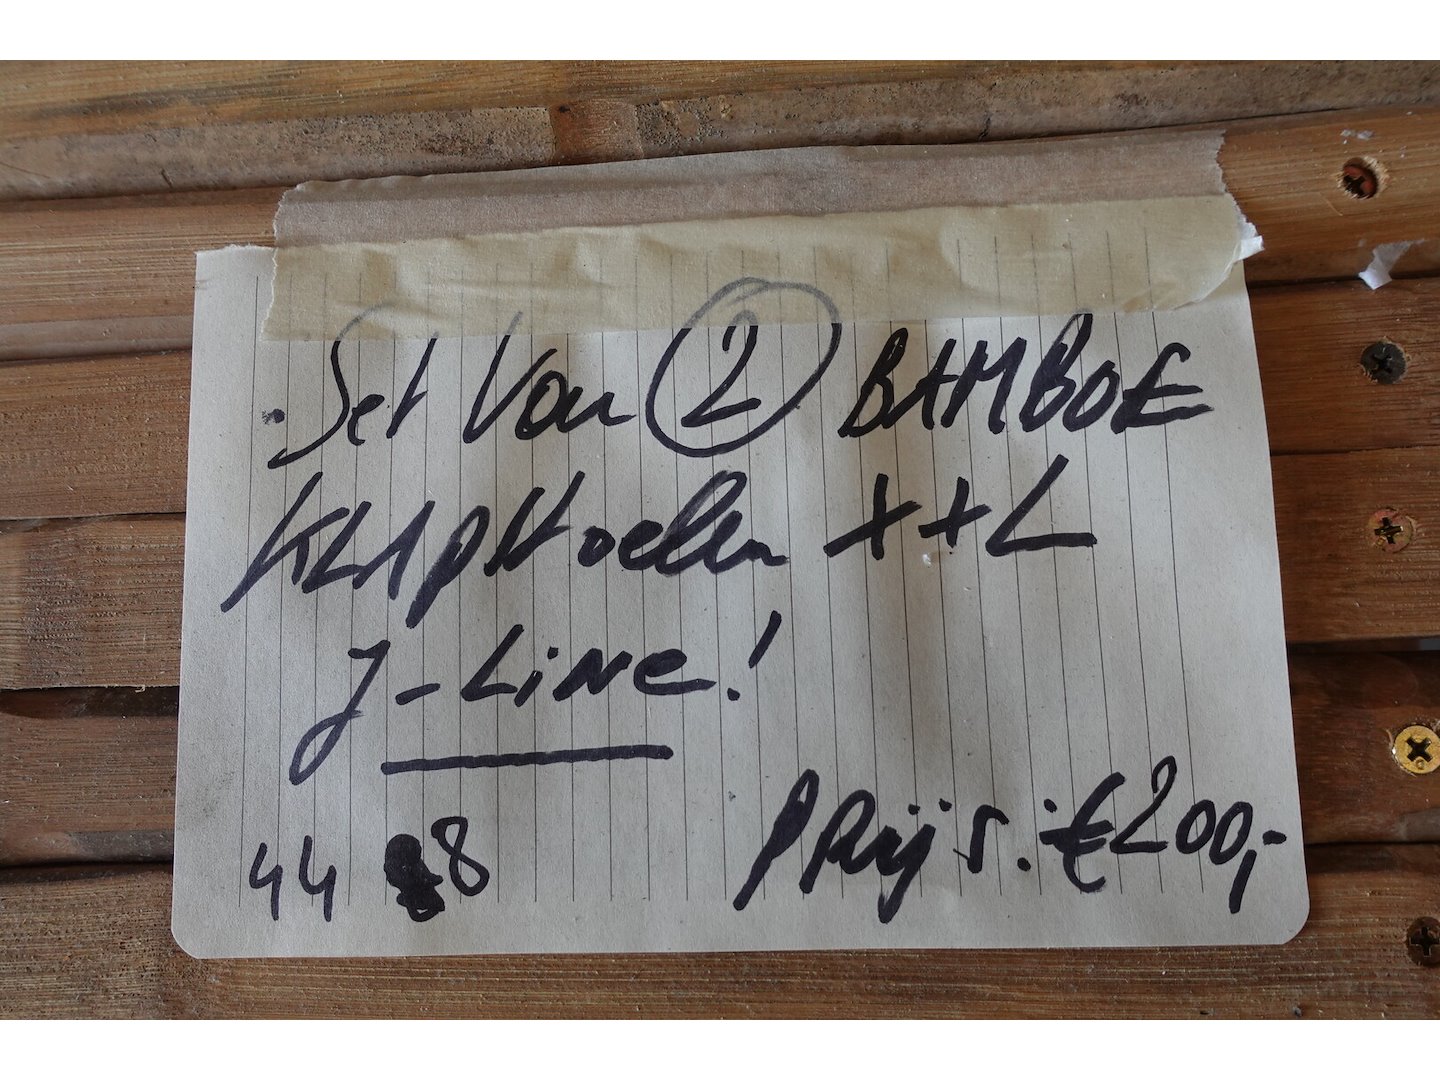 Set Van 2 BAMBOE
KLAPstoelen XXL
J-LiNe!
44 8
PRijs: €200,-